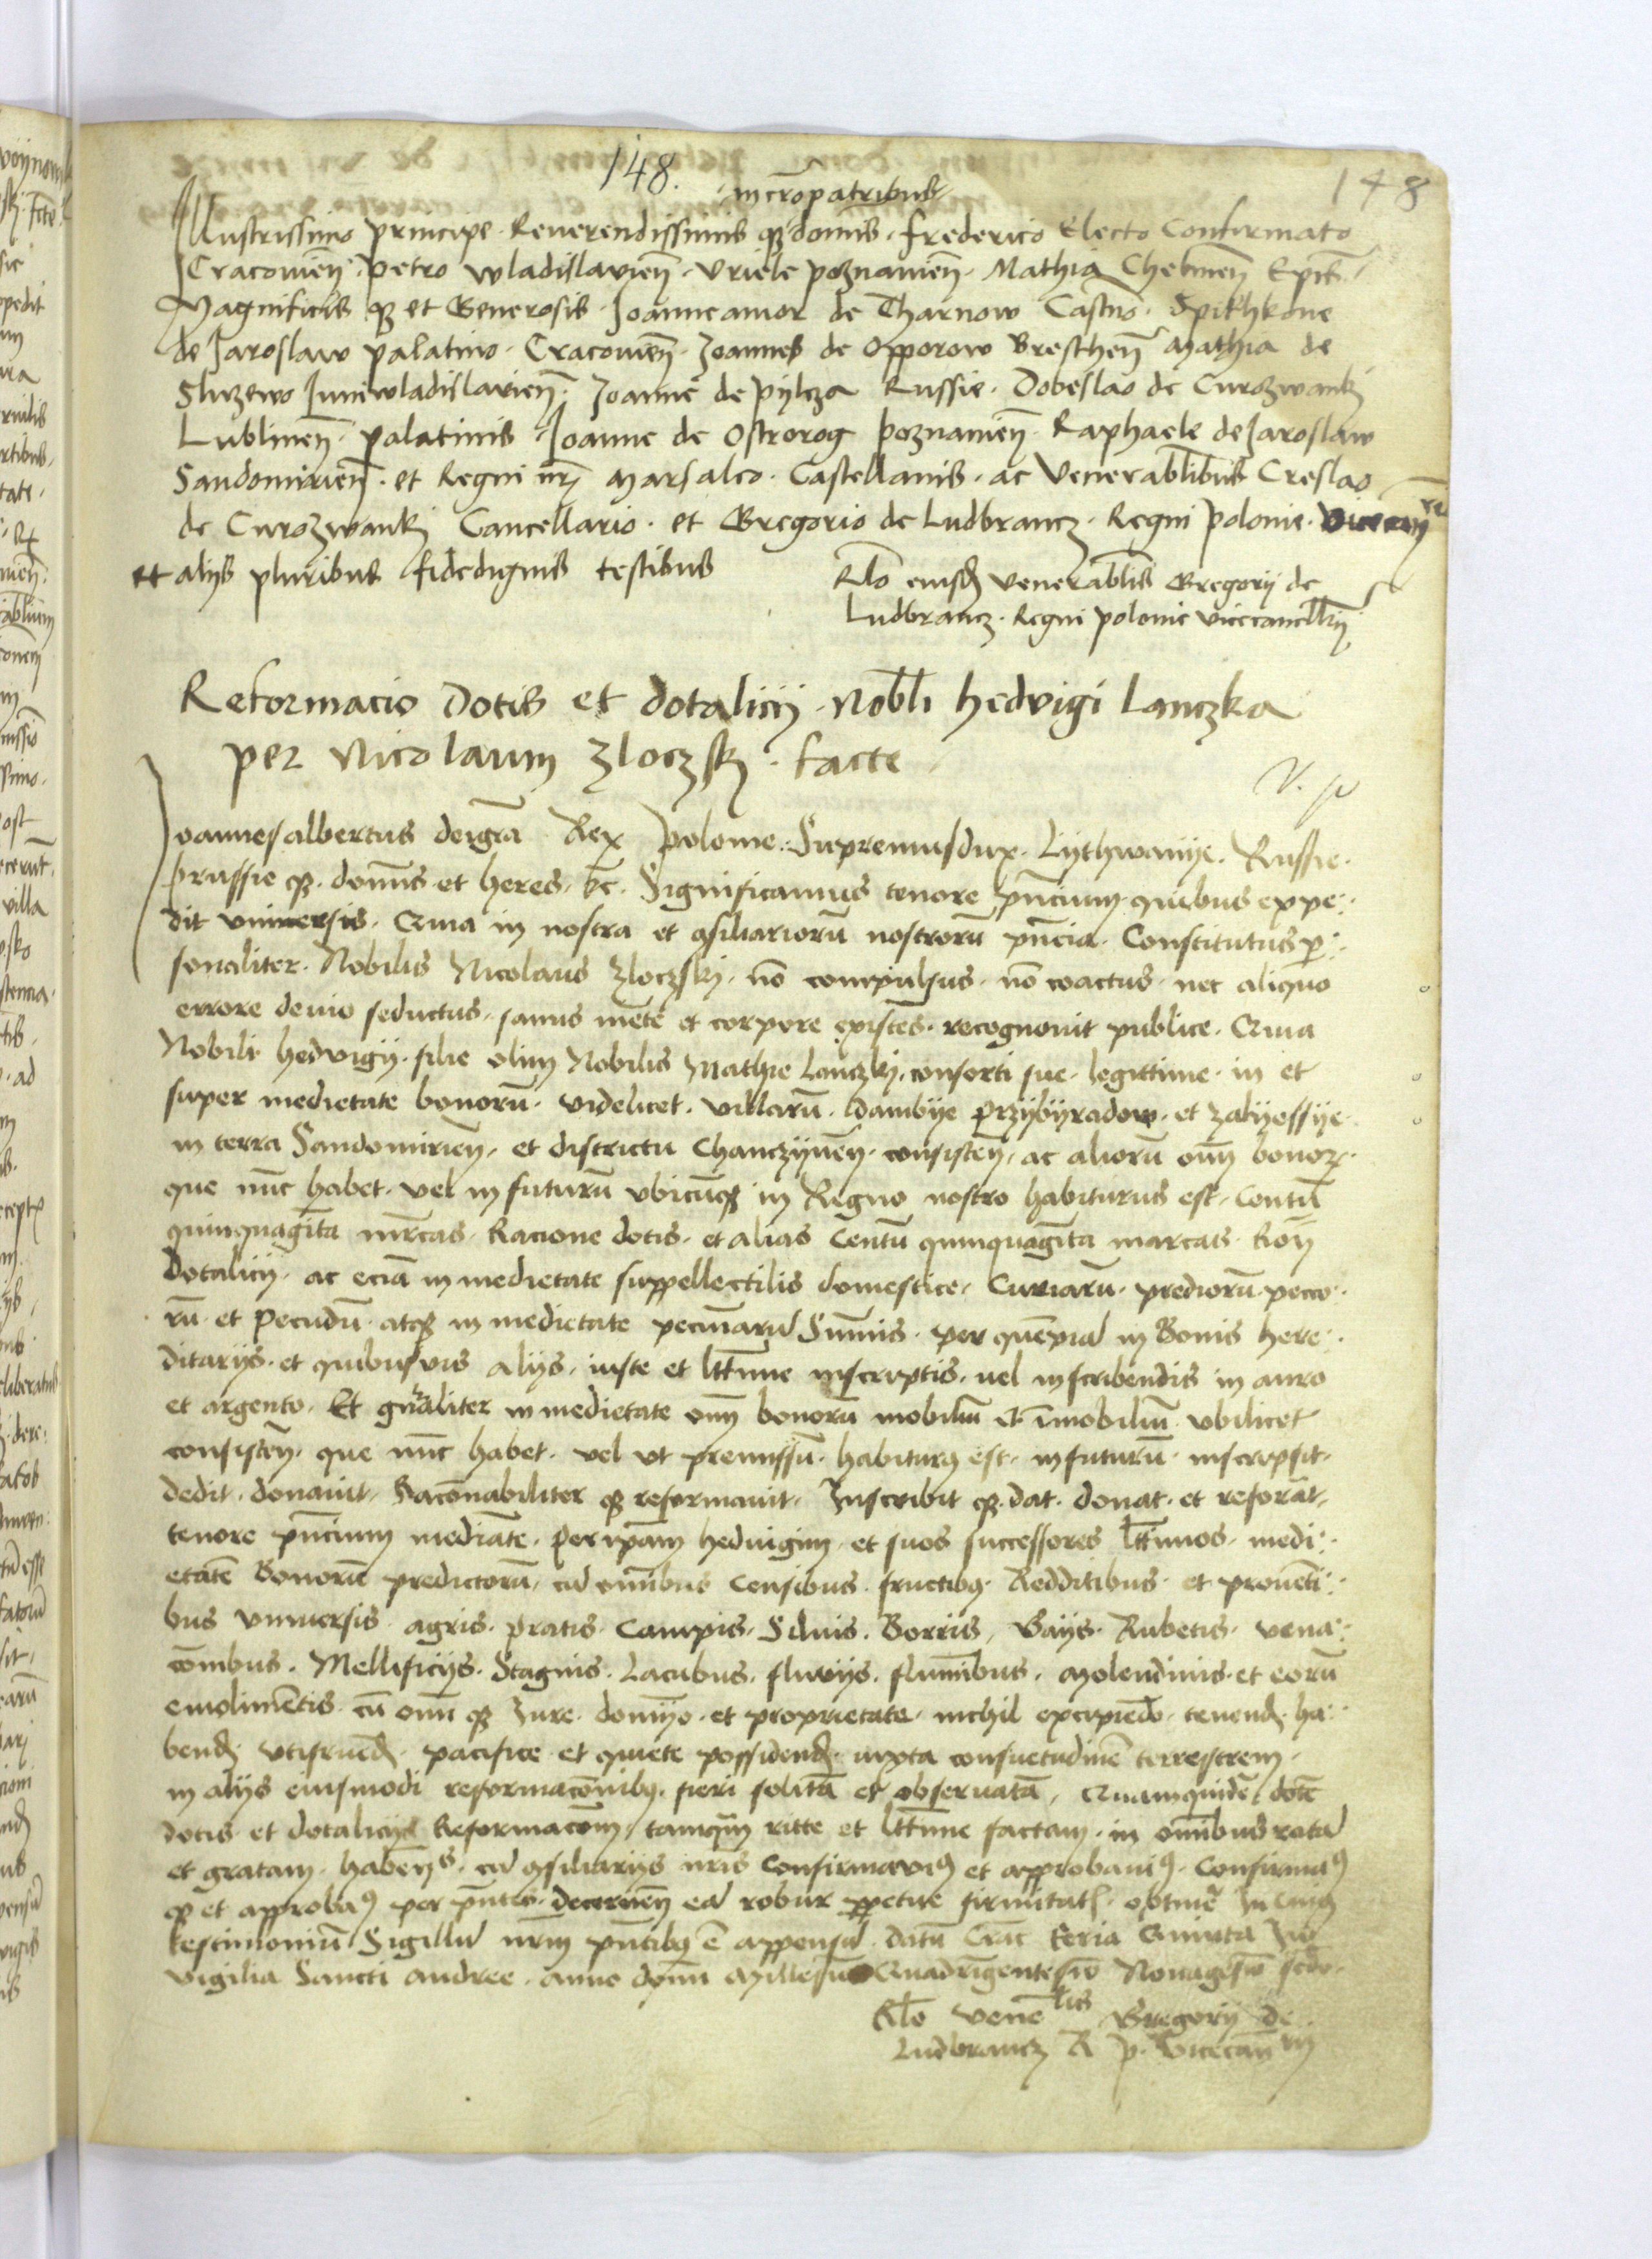 148.
148
in cro patribus
Illustrissimo principe Reuerendissimis qȝ domis. Frederico Electo Confirmato
Cracouien̄. Petro wladislauien̄. Vriele poznanien̄. Mathia Chelmen̄ Epis.
Magnificis qȝ et Generosis Joanne amor de Tharnow Castno. Spithkone
de Jaroslaw palatino. Cracouien̄. Joannes de Opporow Bresthen̄ Mathia de
Sluzewo Juniwladislauien̄. Joanne de pylcza Russie. Dobeslao de Curozwanki
Lublinen̄. palatinis Joanne de Ostrorog poznanien̄. Raphaele de Jaroslaw
Sandomirien̄. et Regni nrj Marsalco. Castellanis. ac Venerablibus Creslao
de Curozwanki Cancellario. et Gregorio de Ludbrancz. Regni polonie.
et alijs pluribus fidedignis testibus
Rlo eiusd venerablis Gregorij de
Ludbrancz. Regni polonie vicecancellrij
Reformacio Dotis et dotalicij Nobli hedvigi Lanczka
per Nicolaum Zloczskj. facte
Joannes albertus dei gra Rex Polonie. Supremus dux. Lythwanije. Russie.
prussie qȝ. domns et heres. &c. Significamus tenore pn̄cium quibus expe:
dit vniuersis. Quia in nostra et ↄsiliariorū nostrorū pn̄cia. Constitutus p:
sonaliter. Nobilis Nicolaus Zloczski. nō compulsus. nō coactus. nec aliquo
errore deuio seductus. sanus mēte et corpore existēs. recognouit publice. Quia
Nobili hedvigij. filie olim Nobilis Mathie Lanczkj. consorti sue. legittime. in et
super medietate bonorū. videlicet. villarū. Dambije Przybyradow. et Zalyessije
in terra Sandomirien̄. et districtu Chanczijnen̄. consisten̄. ac aliorū om̄ bonoꝝ.
que nūc habet. vel in futurū vbicūqȝ in Regno nostro habiturus est. Centū
quinquagīta mrcas. Racione dotis. et alias Centū quinquagīta marcas. Rōn̄
Dotalicij. ac eciā in medietate suppellectilis domestice. Curiarū. prediorū. pecco:
rū. et Pecudū. atqȝ in medietate pecuniarū Sūmis. per quēpiā in Bonis here:
ditarijs. et quibusvis alijs. iuste et lttime inscriptis. uel inscribendis in auro
et argento. Et gnraliter in medietate om̄ bonorū mobiliū et īmobiliū vbilicet
consistēn. que nūc habet. vel vt premissū. habiturꝯ est. in futurū. inscripsit.
dedit. donauit. Racōnabiliter qȝ reformauit. Inscribit qȝ. dat. donat. et reforāt.
tenore pn̄cium mediāte. Per ipam hedvigim. et suos successores lttimos. medi:
etatē Bonorū predictorū. cū omībus Censibus. fructibꝯ. Redditibus. et prouēti:
bus vniuersis. agris. pratis. Campis. Siluis. Borris. Gaijs. Rubetis. vena:
cōnibus. Mellificijs. Stagnis. Lacubus. fluvijs. flumībus. Molendinis. et eorū
emolimētis. cū omī qȝ Jure. domīo. et proprietate. nichil excipiēdo. tenend. ha:
bend. vtifruēd. pacifice et quiete possidend. iuxta consuetudinē terrestrem.
in alijs eiusmodi reformacōnibꝯ. fieri solitā et obseruatā. Quamquidē dotē
dotis et dotalicij Reformacōm. tamqm ritte et lttime factam. in omībus ratā
et gratam. habēn. cū ↄsiliarijs nris confirmauiꝯ et approbauiꝯ. Confirmaꝯ
qȝ et approbaꝯ per pn̄tes. decernen̄ eā robur ppetue firmitatis. obtinē In cuiꝯ
testimoniū Sigillū nrm pn̄tibꝯ ē appensū. datū Crac Feria Quinta In
vigilia Sancti andree. anno domi Millesimo Quadringentesio Nonagesio scdo.
Rlo venelis Gregorij de
Ludbrancz R P. vicecanrij